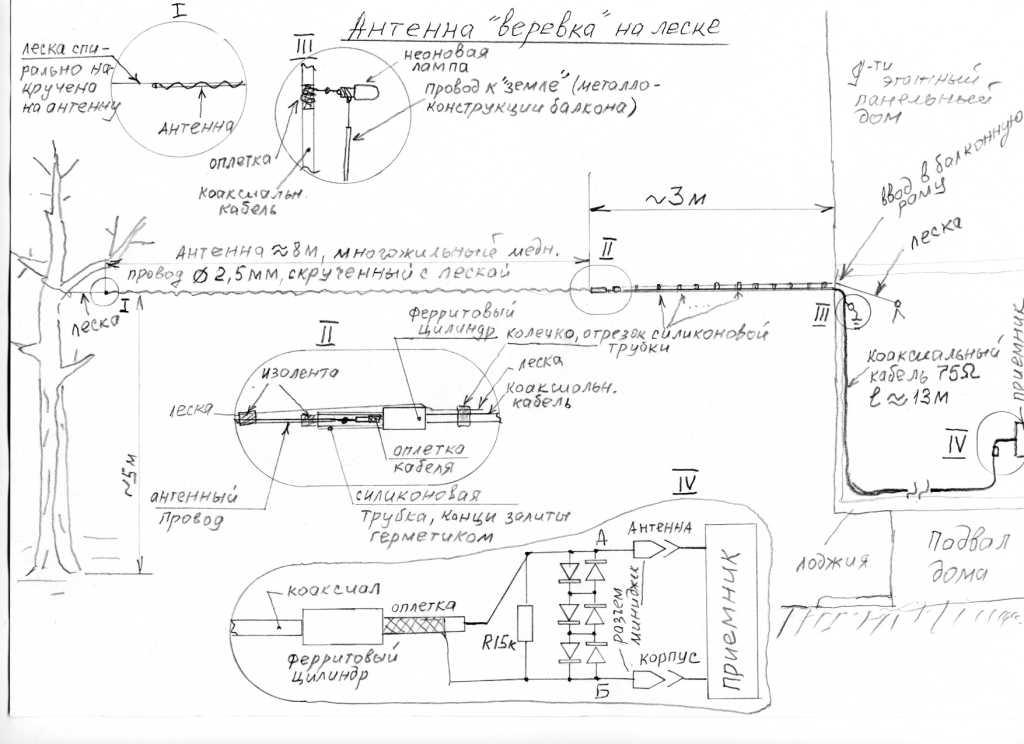 Антенна "веревка" на леске
I
леска спи-
рально на-
кручена
на антенну
Антенна
III
неоновая
лампа
провод к "земле" (металло-
конструкции балкона)
оплетка
коаксиальн.
кабель
9-ти
этажный
панельный
дом
ввод в балконную
раму
леска
~3м
Антенна ≈8м, многожильный медн.
провод Ø 2,5мм, скрученный с леской
II
I
леска
III
ферритовый
цилиндр
колечко, отрезок силиконовой
трубки
II
изолента
леска
коаксиальн.
кабель
леска
оплетка
кабеля
антенный
провод
силиконовая
трубка, концы залиты
герметиком
~5м
коаксиальный
кабель 75Ω
ℓ ≈ 13м
приемник
IV
лоджия
Подвал
дома
IV
коаксиал
оплетка
ферритовый
цилиндр
R15к
А
Антенна
разъем
миниджек
корпус
Б
ПРИЕМНИК